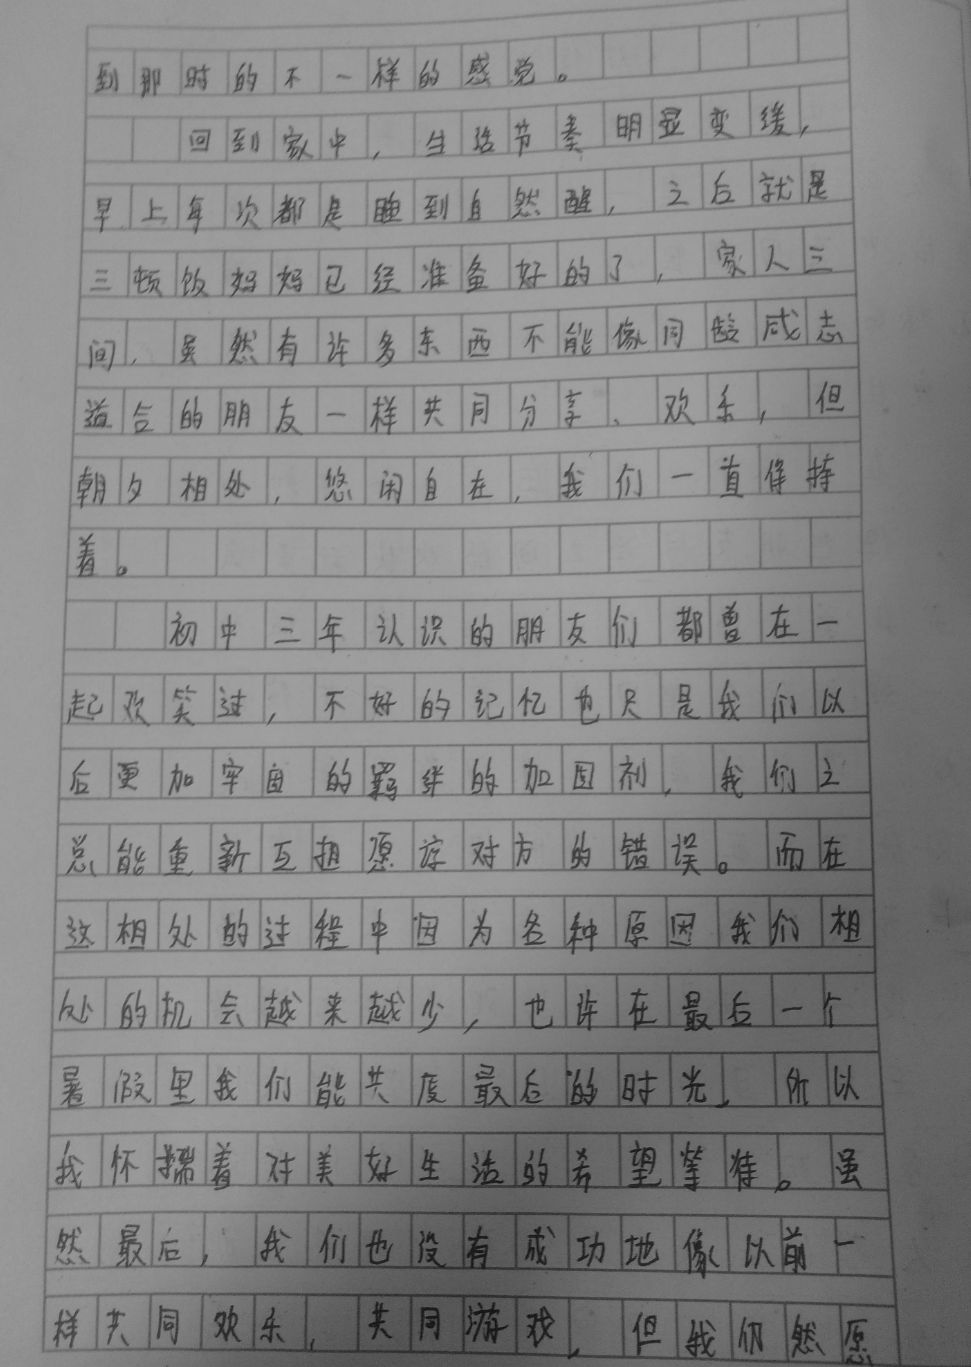 到那时的不一样的感觉。
回到家中，生活节奏明显变缓，
早上每次都是睡到自然醒，之后就是
三顿饭妈妈已经准备好的了，家人三
间，虽然有许多东西不能像同龄或志
道合的朋友一样共同分享、欢乐，但
朝夕相处，悠闲自在，我们一直保持
着。
初中三年认识的朋友们都曾在一
起欢笑过，不好的记忆也只是我们以
后更加牢固的羁绊的加固剂，我们之
总能重新互相原谅对方的错误。而在
这相处的过程中因为各种原因我们相
处的机会越来越少，也许在最后一个
暑假里我们能共度最后的时光，所以
我怀揣着对美好生活的希望等待。虽
然最后，我们也没有成功地像以前一
样共同欢乐，共同游戏，但我仍然愿